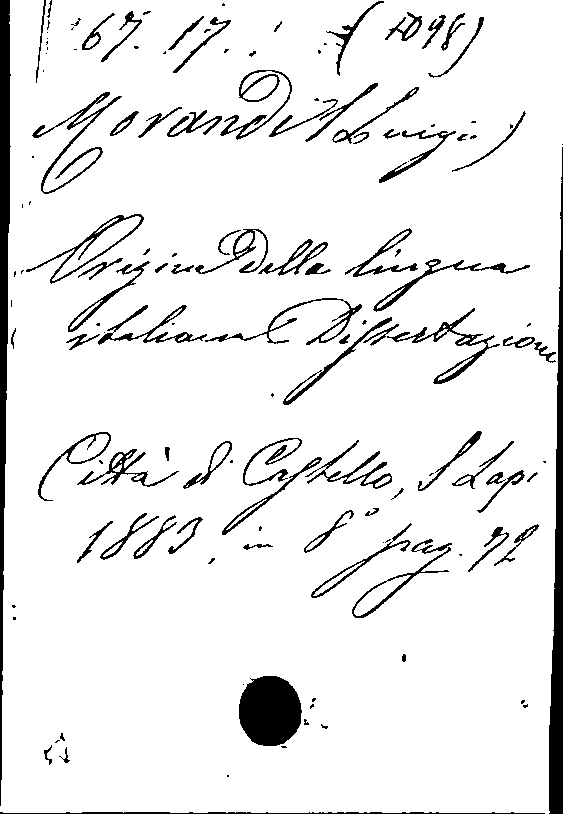 67. 17. (1098)
Morandi (Luigi)
Origine della lingua
italiana Dissertazione
Città di Castello, S Lapi
1883, in 8° pag. 72